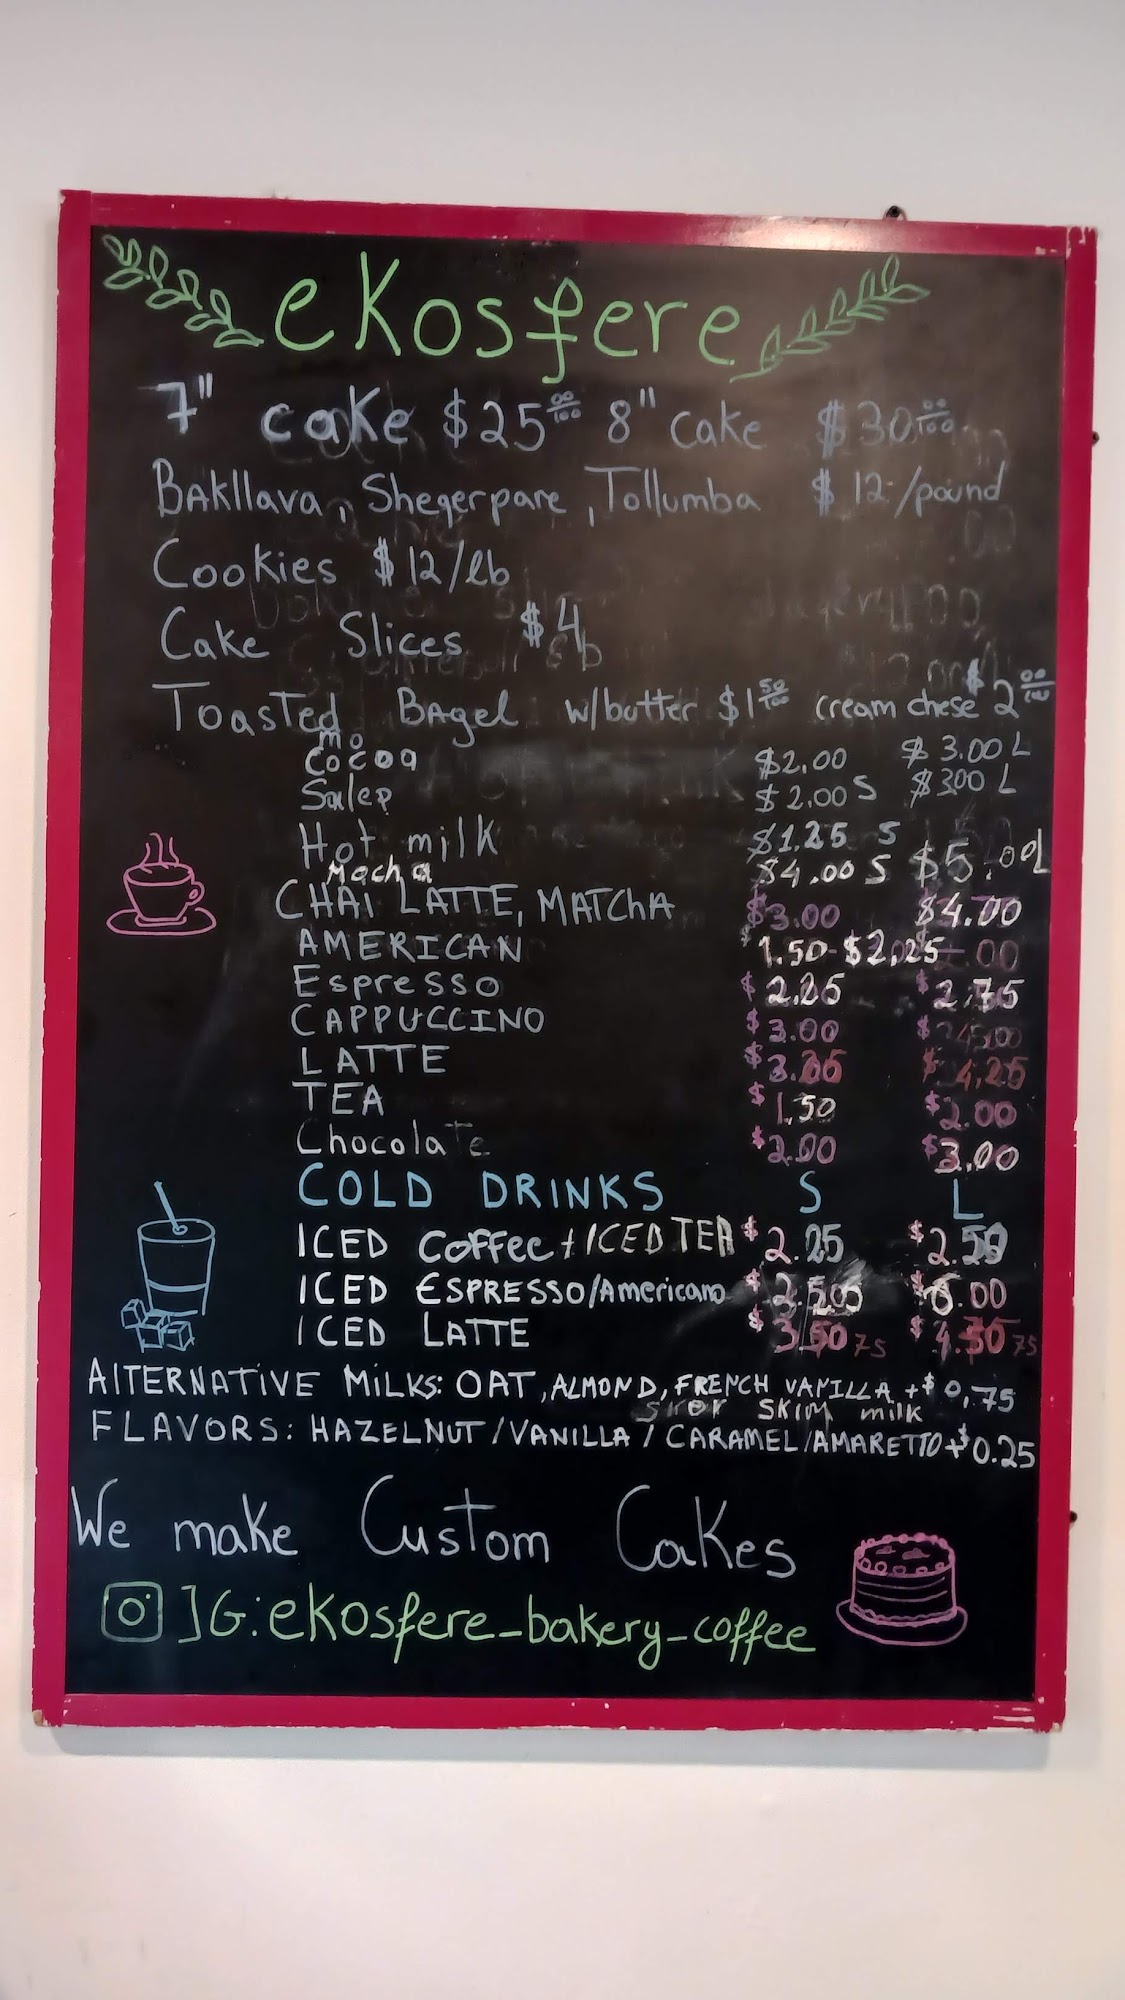 ekosfere
7" cake $25 00/100 8" cake $30 00/100
BAKllava, Sheqerpare, Tollumba $12/pound
Cookies $12/lb
Cake Slices $4
Toasted Bagel w/butter $1 50/100 cream chese $2 00/100
Cocoa $2.00 $3.00 L
Salep $2.00 S $300 L
Hot milk $1.25 S
Mocha $4.00 S $5.00 L
CHAI LATTE, MATChA $3.00 $4.00
AMERICAN 1.50 - $2,25
Espresso $2.25 $2.75
CAPPUCCINO $3.00
LATTE $4,25
TEA $1,50 $2.00
Chocolate $2.00 $3.00
COLD DRINKS S L
ICED Coffee + ICED TEA $2.25 $2.50
ICED ESPRESSO/Americano
ICED LATTE
AlTERNATIVE MiLKS: OAT, ALMOND, FRENCH VANILLA +$0,75
SKIM milk
FLAVORS: HAZELNUT/VANILLA/CARAMEL/AMARETTO+$0.25
We make Custom Cakes
IG:ekosfere_bakery_coffee